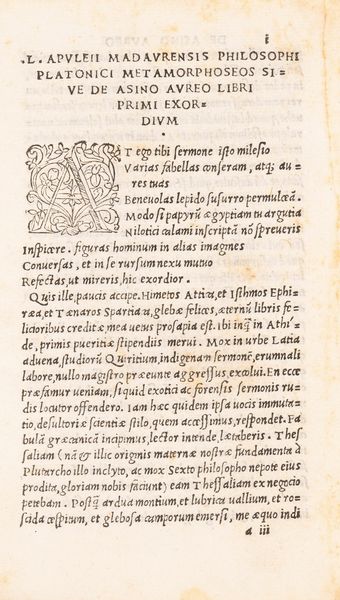 DE ASINO AVREO
i
.L. APVLEII MADAVRENSIS PHILOSOPHI
PLATONICI METAMORPHOSEOS SI=
VE DE ASINO AVREO LIBRI
PRIMI EXOR=
DIVM
AT ego tibi sermone isto milesio
Varias fabellas conseram, atq; au=
res tuas
Beneuolas lepido susurro permulceā.
Modo si papyrū ægyptiam tu argutia
Nilotici calami inscriptā nō spreueris
Inspicere. figuras hominum in alias imagnes
Conuersas, et in se rursum nexu mutuo
Refectas, ut mireris, hic exordior.
Quis ille, paucis accipe. Himetos Attica, et Isthmos Ephi=
ræa, et Tænaros Spartiaca, glebæ felices, æternū libris fe=
licioribus creditæ, mea uetus prosapia est. Ibi inq̄ in Athi=
de, primis pueritiæ stipendiis merui. Mox in urbe Latia
aduena, studiorū Quiritium, indigenam sermonē, erumnali
labore, nullo magistro præeunte aggressus, excolui. En ecce
præfamur ueniam, si quid exotici ac forensis sermonis ru=
dis locutor offendero. Iam hæc quidem ipsa uocis immuta=
tio, desultoriæ scientiæ stilo, quem accessimus, respondet. Fa
bulā græcanicā incipimus, lector intende, lætaberis. Thes
saliam (nā & illic orignis maternæ nostræ fundamenta à
Plutarcho illo inclyto, ac mox Sexto philosopho nepote eius
prodita, gloriam nobis faciunt) eam Thessaliam ex negocio
petebam. Postq̄ ardua montium, et lubrica uallium, et ro=
scida cespitum, et glebosa camporum emersi, me æquo indi
a iii